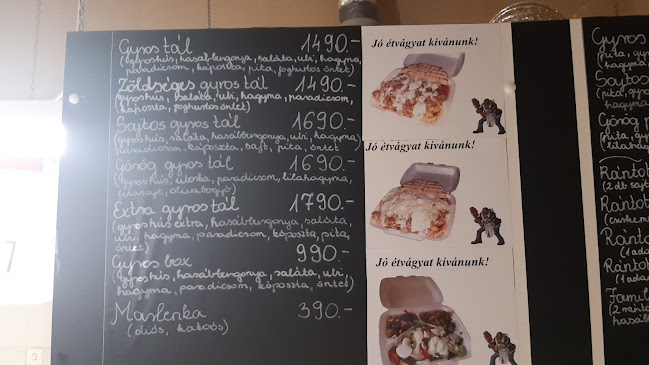 Gyros tál 1490.-
(gyroshús, hasábburgonya, saláta, ubi, hagyma,
paradicsom, káposzta, pita, joghurtos öntet)
Zöldséges gyros tál 1490.-
(gyroshús, saláta, ubi, hagyma, paradicsom,
káposzta, joghurtos öntet)
Sajtos gyros tál 1690.-
(gyroshús, saláta, hasábburgonya, ubi, hagyma,
paradicsom, káposzta, sajt, pita, öntet)
Görög gyros tál 1690.-
(gyroshús, uborka, paradicsom, lilahagyma,
fetasajt, olivabogyó)
Extra gyros tál 1790.-
(gyroshús extra, hasábburgonya, saláta,
ubi, hagyma, paradicsom, káposzta, pita,
öntet)
Gyros box 990.-
(gyroshús, hasábburgonya, saláta, ubi,
hagyma, paradicsom, káposzta, öntet)
Marlenka 390.-
(diós, kakaós)
Jó étvágyat kívánunk!
Jó étvágyat kívánunk!
Jó étvágyat kívánunk!
Gyros
(pita, gy
hagyma
Sajtos
(pita, gy
hagyma
Görög
(pita, gy
lilahag
Rántot
(2 db sajt
Rántot
Ránto
(1 ada
Rántot
(1 ada
Famil
hasáb